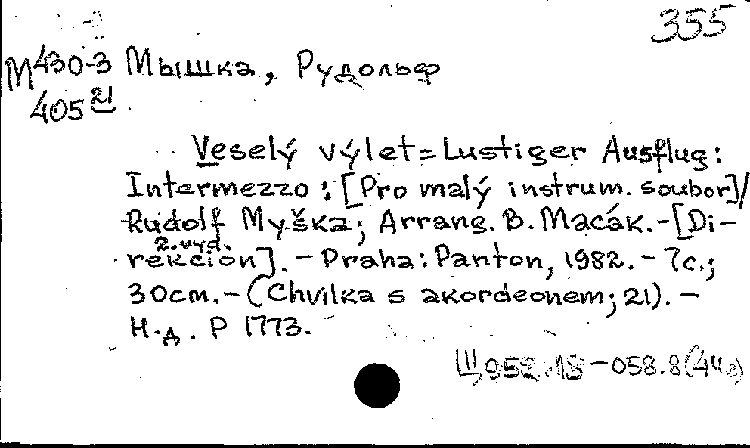 355
М430-3 Мышка, Рудольф
405 21
Veselý výlet = Lustiger Ausflug:
Intermezzo: [Pro malý instrum. soubor]/
Rudolf Myška; Arrang. B. Macák. - [Di-
2. vyd.
rekcion]. - Praha: Panton, 1982. - 7c.;
30cm. - (Chvilka s akordeonem; 21). -
Н.д. P 1773.
Щ952.18-058.8(44e)